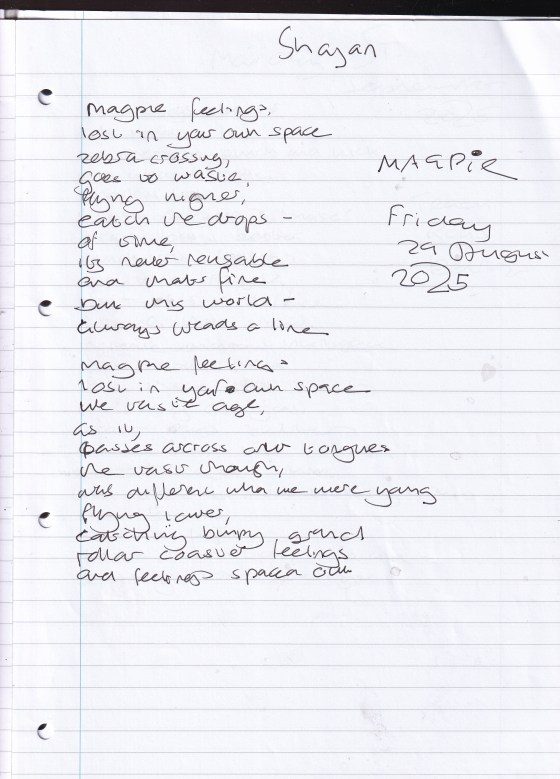 Shayan
MAGPIE
Friday
29 August
2025
magpie feelings,
lost in your own space
zebra crossing,
goes to waste,
flying higher,
catch the drops -
of time,
its never reusable
and that's fine
but this world -
always treads a line
magpie feelings
lost in your own space
we taste age,
as it,
passes across our tongues
the taste though,
was different when we were young
flying lower,
catching bumpy ground
rollar coaster feelings
and feelings spaced out